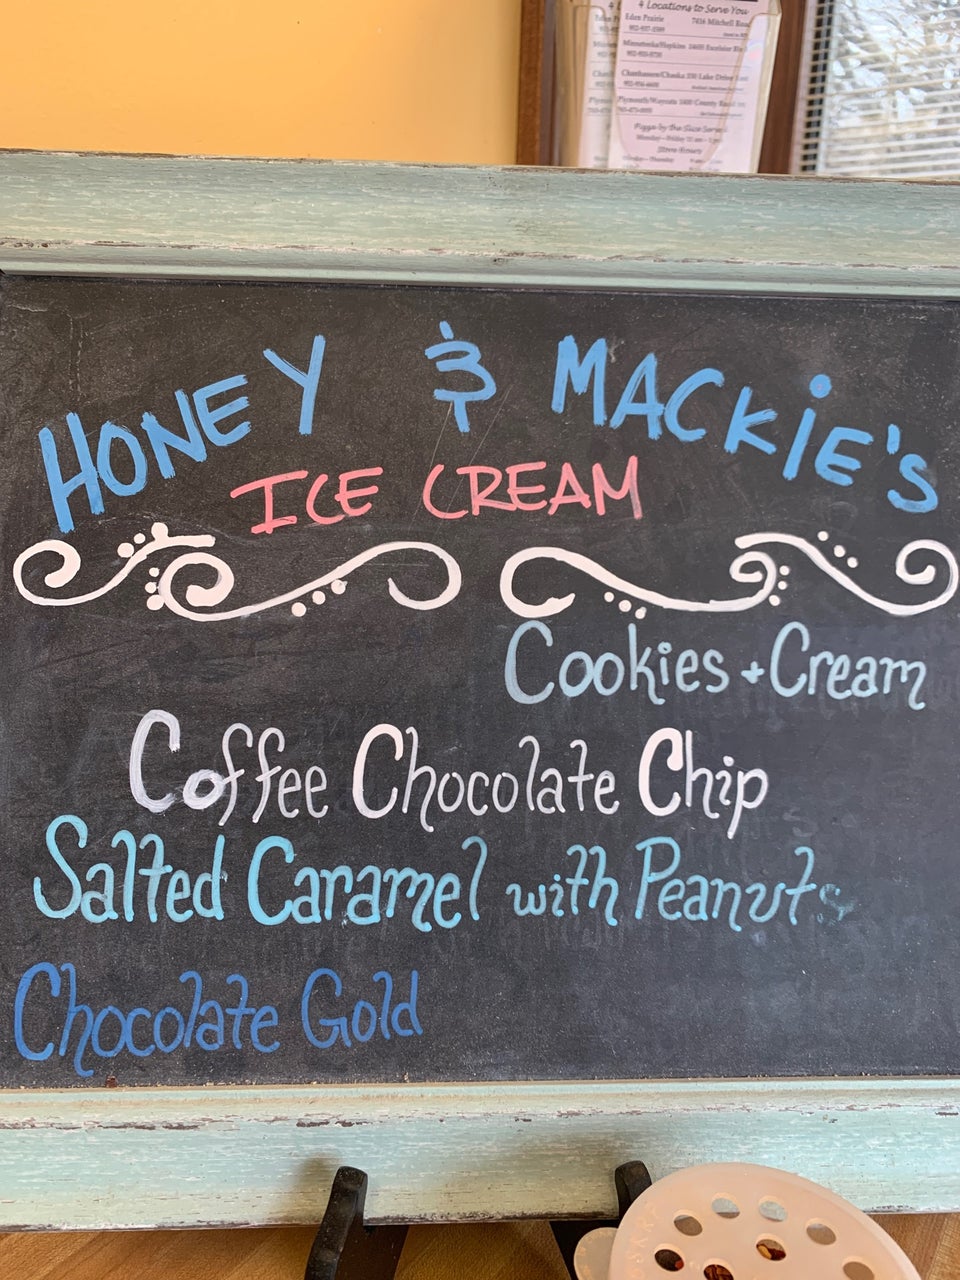 4 Locations to Serve You
Eden Prairie 7416 Mitchell Road
Minnetonka/Hopkins 14605 Excelsior
Chanhassen/Chaska 530 Lake Drive East
Plymouth/Wayzata 1400 County Road 101
Pizza by the Slice Served
Monday - Friday 11 am
Store Hours
HONEY & MACKiE'S
ICE CREAM
Cookies + Cream
Coffee Chocolate Chip
Salted Caramel with Peanuts
Chocolate Gold